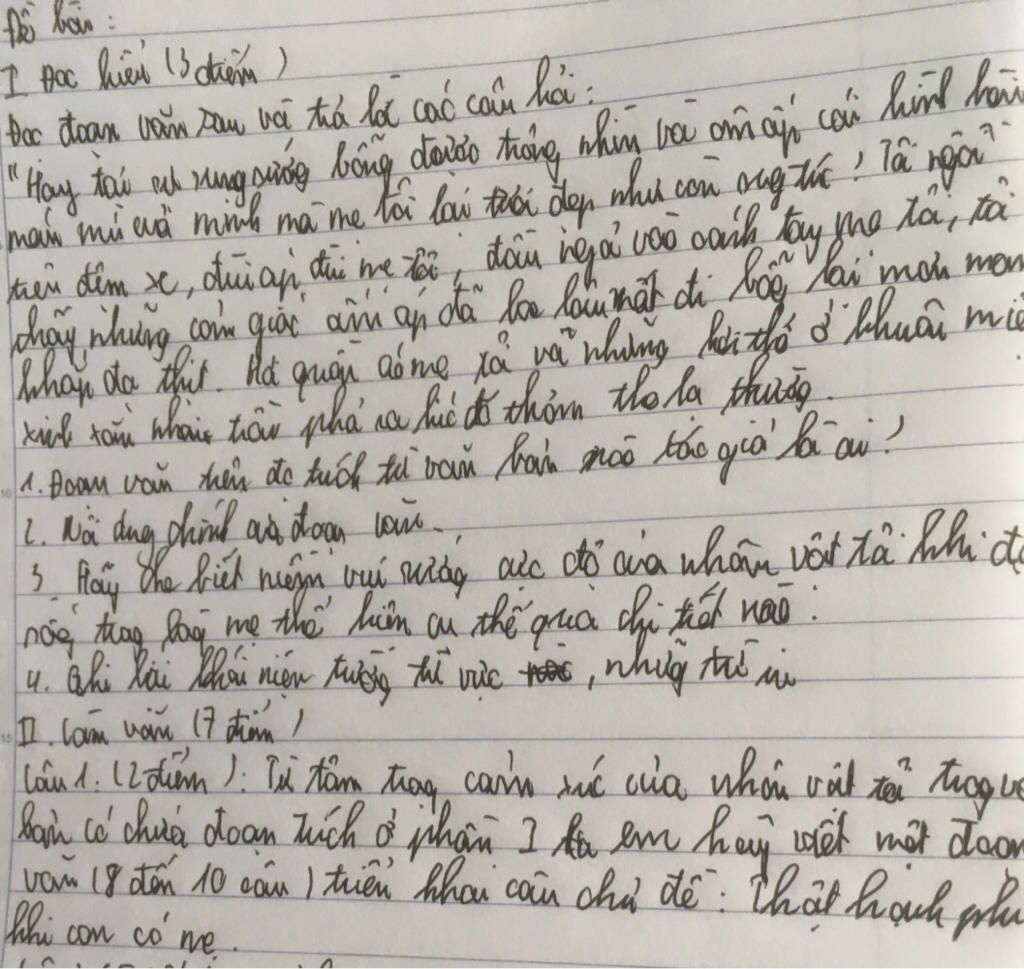 Đề bài :
I Đọc hiểu (3 điểm)
Đọc đoạn văn sau và trả lời các câu hỏi :
"Hay tại sự sung sướng bỗng được trông nhìn và ôm ấp cái hình hài
máu mủ của mình mà mẹ tôi lại tươi đẹp như còn sung túc ! Tôi ngồi
trên đệm xe, đùi áp đùi mẹ tôi, đầu ngả vào cánh tay mẹ tôi, tôi
thấy những cảm giác ấm áp đã bao lâu mất đi bỗng lại mơn man
khắp da thịt. Hơi quần áo mẹ tôi và những hơi thở ở khuôn miệ
xinh xắn nhai trầu phả ra lúc đó thơm tho lạ thường.
1. Đoạn văn trên đc trích từ văn bản nào tác giả là ai ?
2. Nội dung chính của đoạn văn.
3 Hãy cho biết niềm vui sướng cực độ của nhân vật tôi khi đc
trong lòng mẹ thể hiện cụ thể qua chi tiết nào :
4. Ghi lại khái niệm trường từ vựng , những từ
II. Làm văn (7 điểm)
Câu 1. (2 điểm) : Từ tâm trạng cảm xúc của nhân vật tôi trong v
bản có chứa đoạn trích ở phần I em hãy viết một đoạn
văn (8 đến 10 câu) triển khai câu chủ đề : Thật hạnh phú
khi con có mẹ.